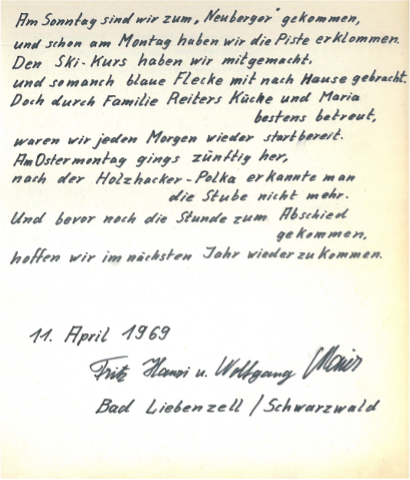 Am Sonntag sind wir zum „Neuberger" gekommen,
und schon am Montag haben wir die Piste erklommen.
Den Ski-Kurs haben wir mitgemacht,
und somanch blaue Flecke mit nach Hause gebracht.
Doch durch Familie Reiters Küche und Maria
bestens betreut,
waren wir jeden Morgen wieder startbereit.
Am Ostermontag gings zünftig her,
nach der Holzhacker-Polka erkannte man
die Stube nicht mehr.
Und bevor noch die Stunde zum Abschied
gekommen,
hoffen wir im nächsten Jahr wieder zu kommen.
11. April 1969
Fritz Hansi u. Wolfgang
Bad Liebenzell / Schwarzwald